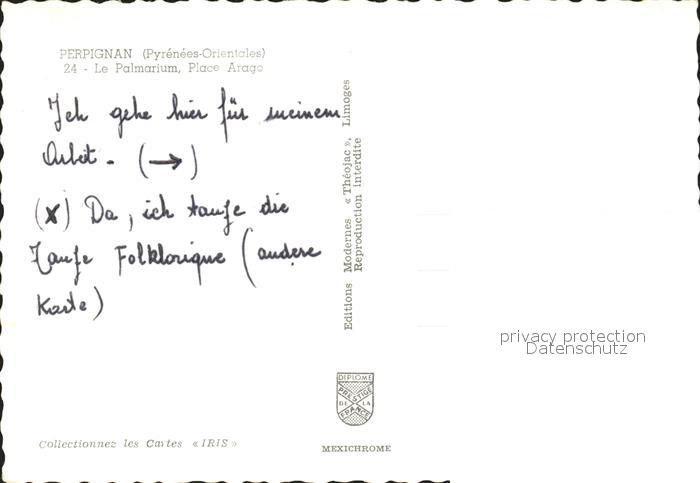 PERPIGNAN (Pyrénées-Orientales)
24 - Le Palmarium, Place Arago
Ich gehe hier für meinem
Arbeit. (→)
(x) Da, ich taufe die
Taufe Folklorique (andere
Karte)
Editions Modernes «Théojac», Limoges
Reproduction interdite
privacy protection
Datenschutz
DIPLOME
PRESTIGE
DE LA
FRANCE
Collectionnez les Cartes «IRIS»
MEXICHROME